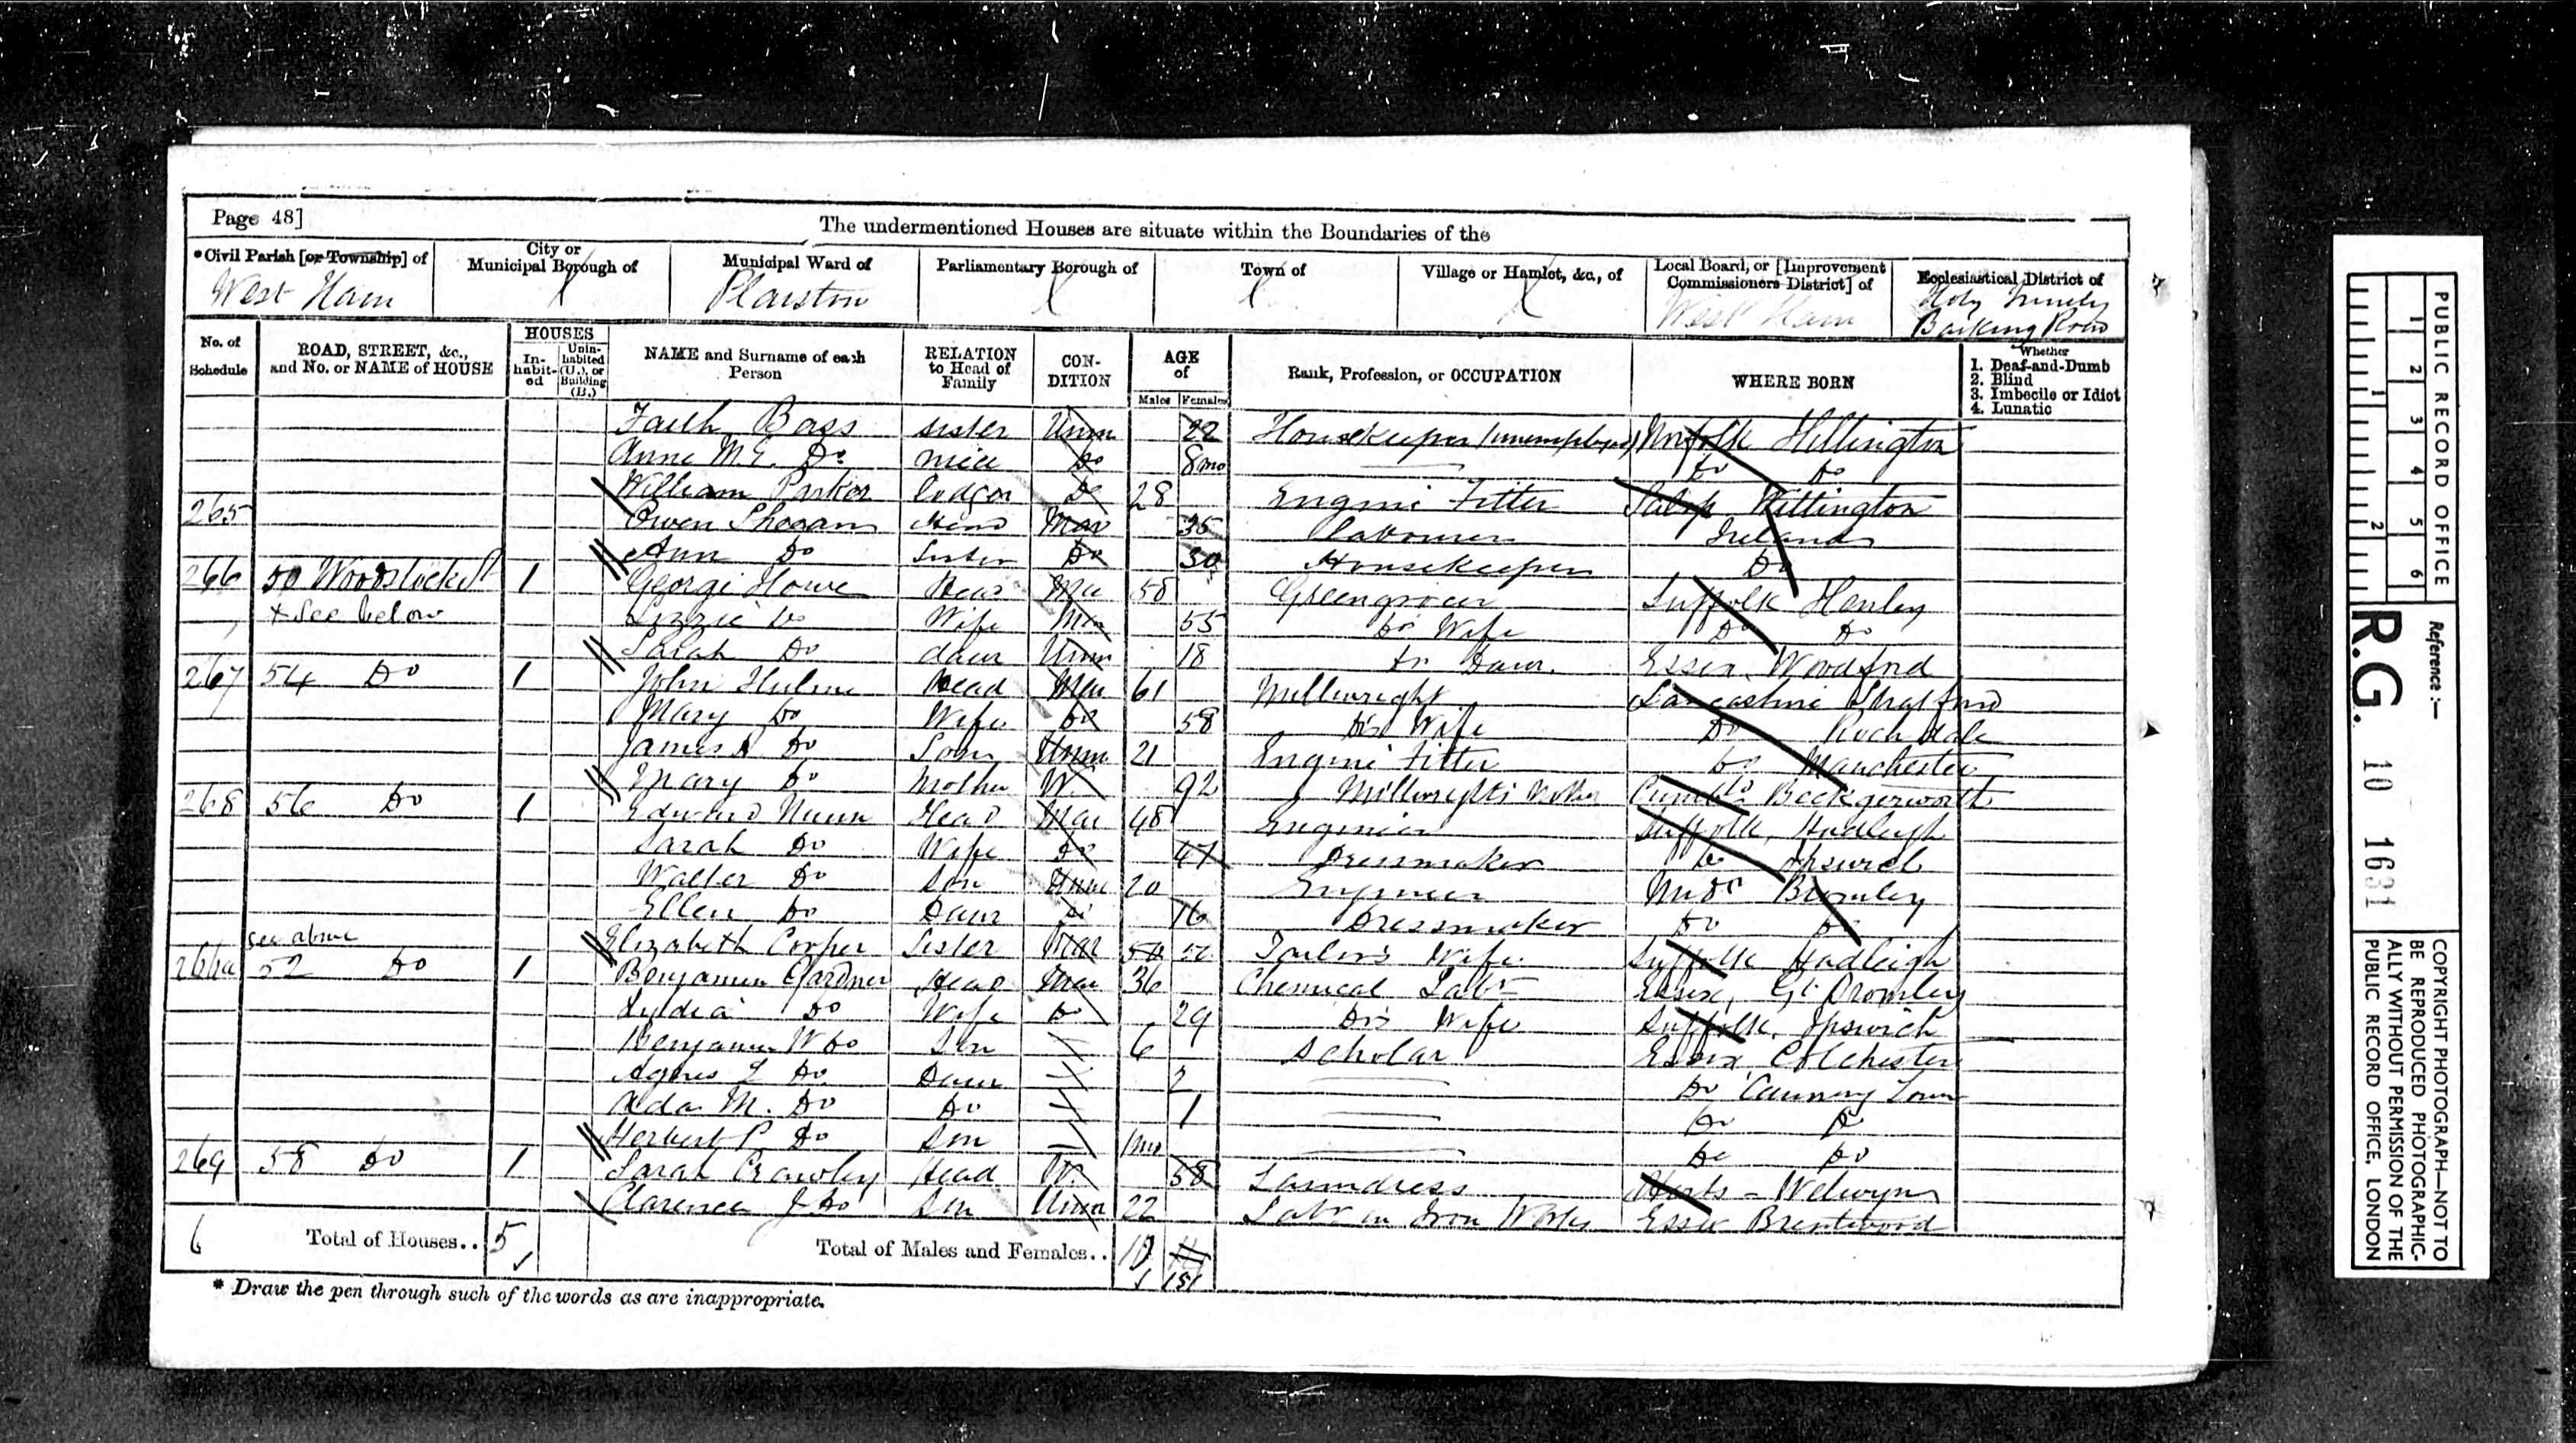 Page 48]
The undermentioned Houses are situate within the Boundaries of the
*Civil Parish [or Township] of
City or Municipal Borough of
Municipal Ward of
Parliamentary Borough of
Town of
Village or Hamlet, &c., of
Local Board, or [Improvement Commissioners District] of
Ecclesiastical District of
West Ham
Plaistow
West Ham
Holy Trinity
Barking Road
No. of Schedule
ROAD, STREET, &c., and No. or NAME of HOUSE
HOUSES
In-habit-ed
Unin-habited (U.), or Building (B.)
NAME and Surname of each Person
RELATION to Head of Family
CON-DITION
AGE of
Males
Females
Rank, Profession, or OCCUPATION
WHERE BORN
Whether
1. Deaf-and-Dumb
2. Blind
3. Imbecile or Idiot
4. Lunatic
Faith Bass sister Unm 22 Housekeeper (unemployed) Norfolk Hillington
Anne M.E. Do niece Do 8mo Do Do
William Parker lodger Do 28 Engine Fitter Salop Wittington
265 Owen Head Mar 35 Labourer Ireland
Ann Do Sister Do 30 Housekeeper Do
266 50 Woodstock St 1 George Howe Head Mar 58 Greengrocer Suffolk Henley
+ See below Lizzie Do Wife Mar 55 Do Wife Do Do
Sarah Do daur Unm 18 Do Daur. Essex Woodford
267 54 Do 1 John Hulme Head Mar 61 Millwright Lancashire
Mary Do Wife Do 58 Do's Wife Do Rochdale
James Do Son Unm 21 Engine Fitter Do Manchester
Mary Do Mother W. 92 Millwrights Mother
268 56 Do 1 Edward Nunn Head Mar 48 Engineer Suffolk, Hadleigh
Sarah Do Wife Do 47 Dressmaker Do Ipswich
Walter Do Son Unm 20 Engineer Midx Bromley
Ellen Do Daur Do 16 Dressmaker Do Do
see above Elizabeth Cooper Sister Mar 50 50 Tailor's Wife Suffolk Hadleigh
266a 52 Do 1 Benjamin Gardner Head Mar 36 Chemical Labr Essex, Gt Bromley
Lydia Do Wife Do 29 Do's Wife Suffolk, Ipswich
Benjamin W Do Son 6 Scholar Essex, Colchester
Agnes L Do Daur 2 Do Canning Town
Ada M. Do Do 1 Do Do
Herbert P Do Son 1mo Do Do
269 58 Do 1 Sarah Crawley Head W. 58 Laundress Herts - Welwyn
Clarence J Do Son Unm 22 Labr in Iron Works Essex Brentwood
6 Total of Houses.. 5 Total of Males and Females.. 10
15
* Draw the pen through such of the words as are inappropriate.
PUBLIC RECORD OFFICE
1 2 3 4 5 6
1 2
Reference:—
R.G. 10 1631
COPYRIGHT PHOTOGRAPH—NOT TO
BE REPRODUCED PHOTOGRAPHIC-
ALLY WITHOUT PERMISSION OF THE
PUBLIC RECORD OFFICE, LONDON